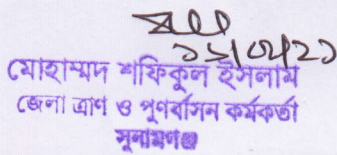 ১১/০৮/২১
মোহাম্মদ শফিকুল ইসলাম
জেলা ত্রাণ ও পুণর্বাসন কর্মকর্তা
সুনামগঞ্জ